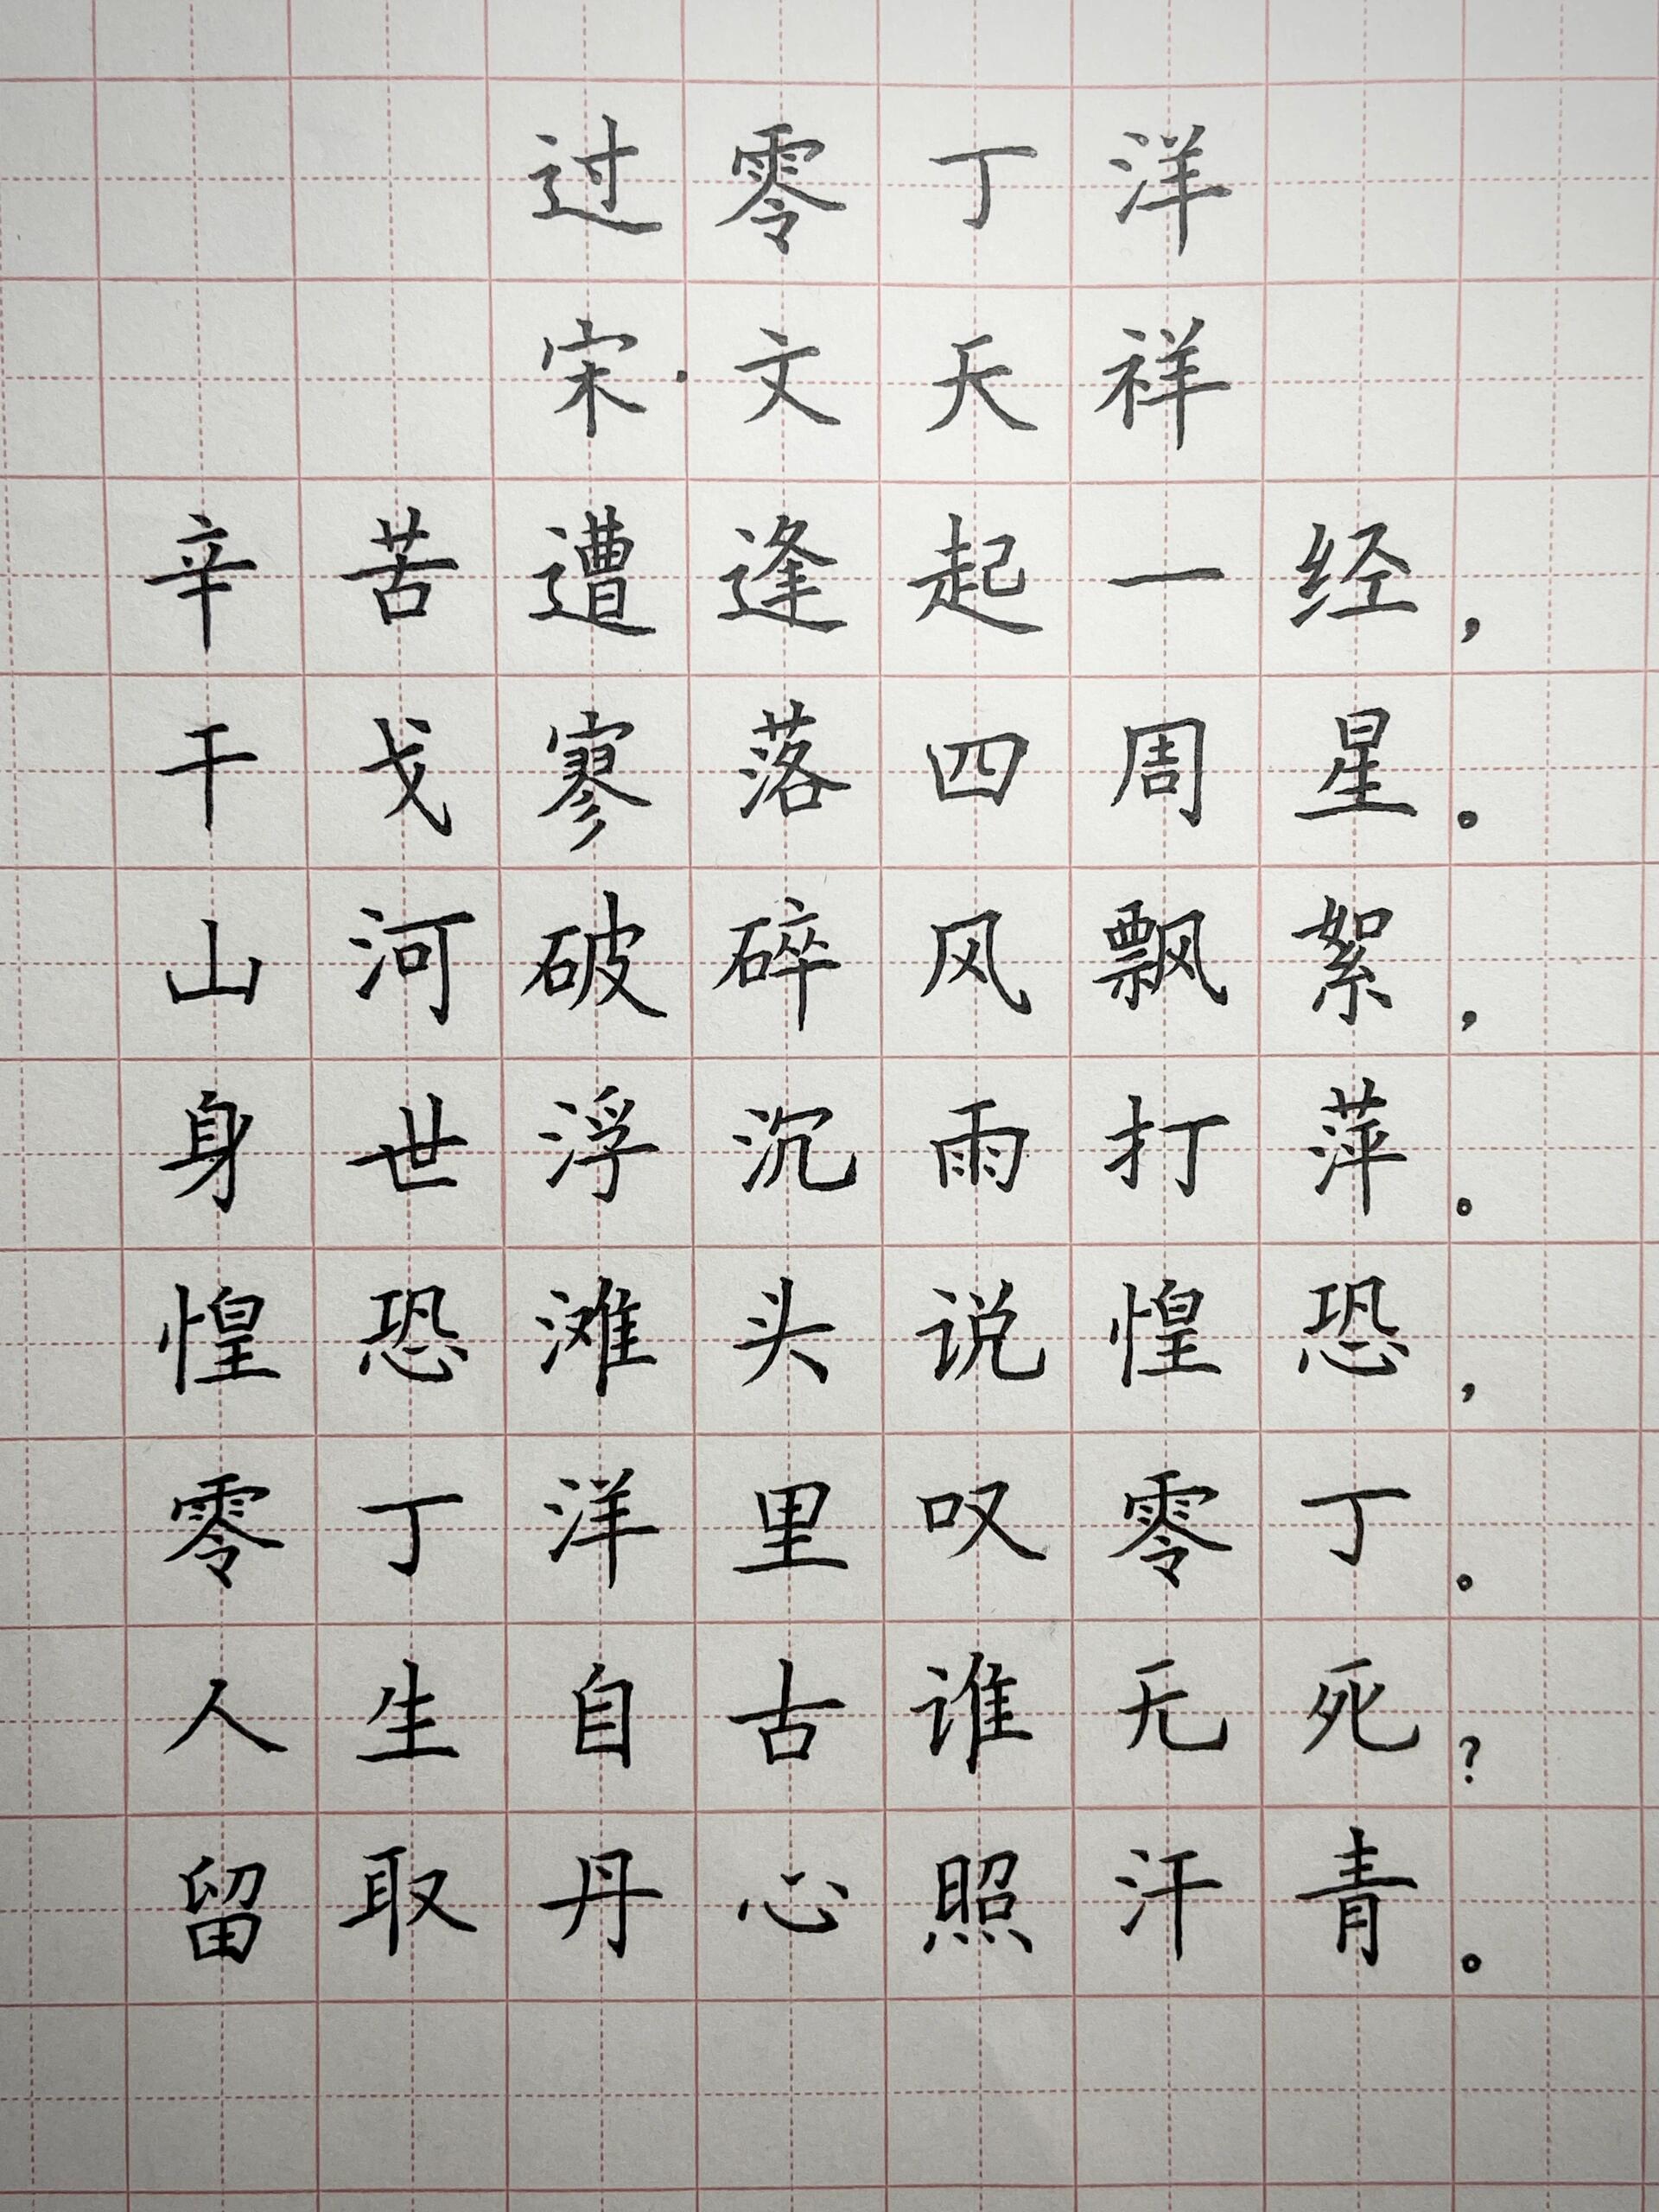 过零丁洋
宋·文天祥
辛苦遭逢起一经，
干戈寥落四周星。
山河破碎风飘絮，
身世浮沉雨打萍。
惶恐滩头说惶恐，
零丁洋里叹零丁。
人生自古谁无死？
留取丹心照汗青。